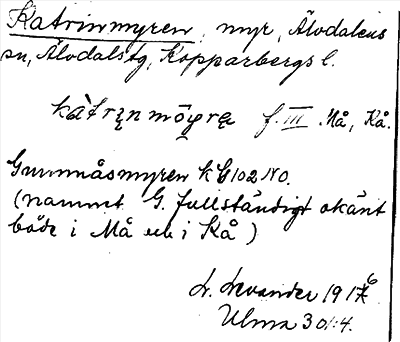 Katrinmyren, myr, Älvdalens
sn, Älvdalstg, Kopparbergs l.
kàtrįnmöyrą f. III Må, Kå.
Gunnåsmyren k 6102 NO.
(namnet G. fullständigt okänt
både i Må och i Kå)
L. Levander 1916
Ulma 301:4.